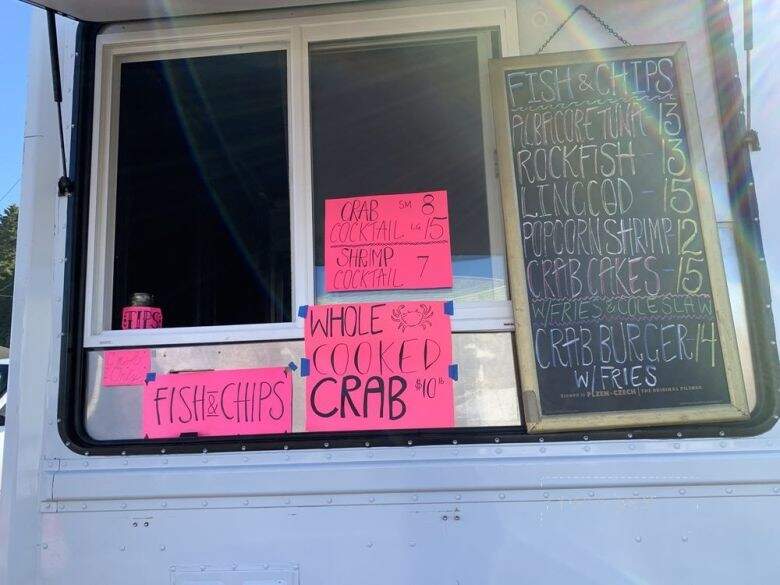 CRAB SM 8
COCKTAIL LG 15
SHRIMP
COCKTAIL 7
TIPS
WHOLE
COOKED
CRAB $10 lb
FISH & CHIPS
FISH & CHIPS
ALBACORE TUNA 13
ROCKFISH - 13
LINGCOD - 15
POPCORN SHRIMP 12
CRAB CAKES - 15
W/FRIES & COLE SLAW
CRAB BURGER 14
W/FRIES
PLZEN-CZECH THE ORIGINAL PILSNER